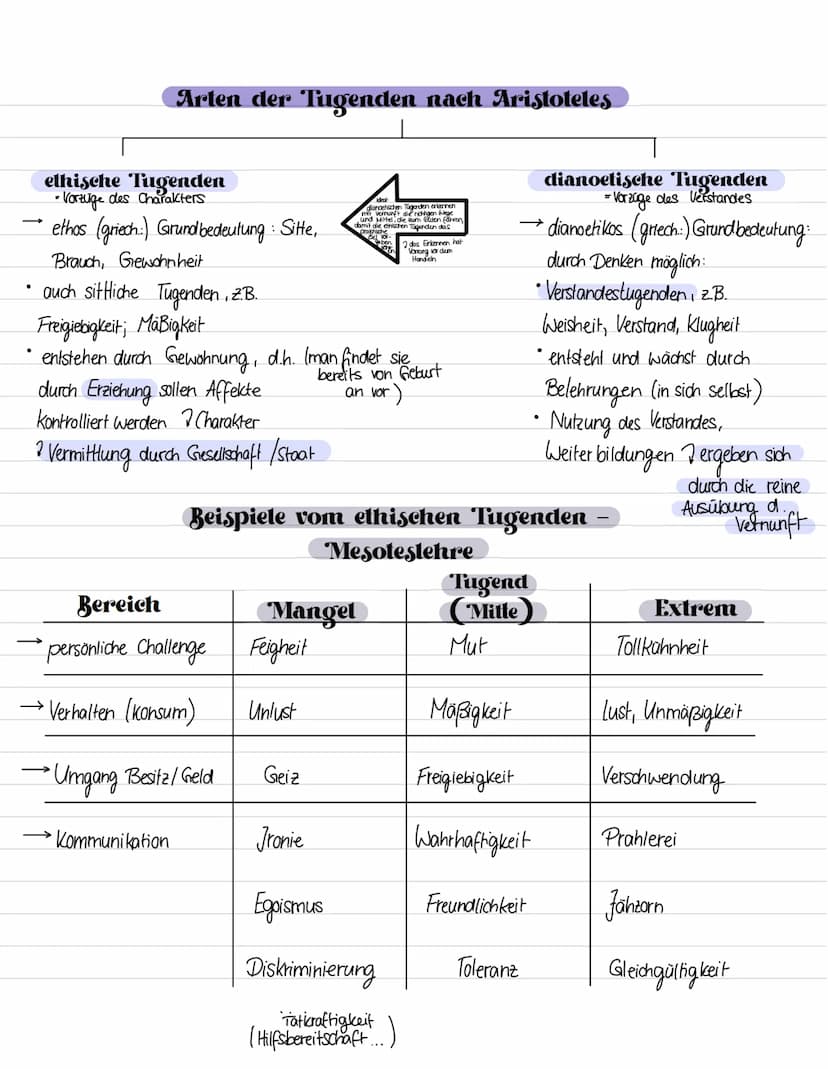 Arten der Tugenden nach Aristoteles
ethische Tugenden
• Vorzüge des Charakters
→ ethos (griech:) Grundbedeutung: Sitte,
Brauch, Gewohnheit
• auch sittliche Tugenden, z.B.
Freigiebigkeit; Mäßigkeit
• entstehen durch Gewöhnung, d.h. (man findet sie
bereits von Geburt
an vor)
durch Erziehung sollen Affekte
kontrolliert werden ? Charakter
? Vermittlung durch Gesellschaft / Staat
dianoetischen Tugenden erkennen
mit Vernunft die richtigen Wege
und Mittel, die zum Guten führen,
damit die ethischen Tugenden das
praktische
? das Erkennen hat
Vorrang vor dem
Handeln
dianoetische Tugenden
= Vorzüge des Verstandes
→ dianoetikos (griech:) Grundbedeutung:
durch Denken möglich:
• Verstandestugenden, z.B.
Weisheit, Verstand, Klugheit
• entsteht und wächst durch
Belehrungen (in sich selbst)
• Nutzung des Verstandes,
Weiterbildungen ? ergeben sich
durch die reine
Ausübung d.
Vernunft
Beispiele vom ethischen Tugenden –
Mesoteslehre
Bereich Mangel Tugend (Mitte) Extrem
→ persönliche Challenge Feigheit Mut Tollkühnheit
→ Verhalten (Konsum) Unlust Mäßigkeit Lust, Unmäßigkeit
→ Umgang Besitz/Geld Geiz Freigiebigkeit Verschwendung
→ Kommunikation Ironie Wahrhaftigkeit Prahlerei
Egoismus Freundlichkeit Jähzorn
Diskriminierung Toleranz Gleichgültigkeit
Tatkräftigkeit
(Hilfsbereitschaft...)